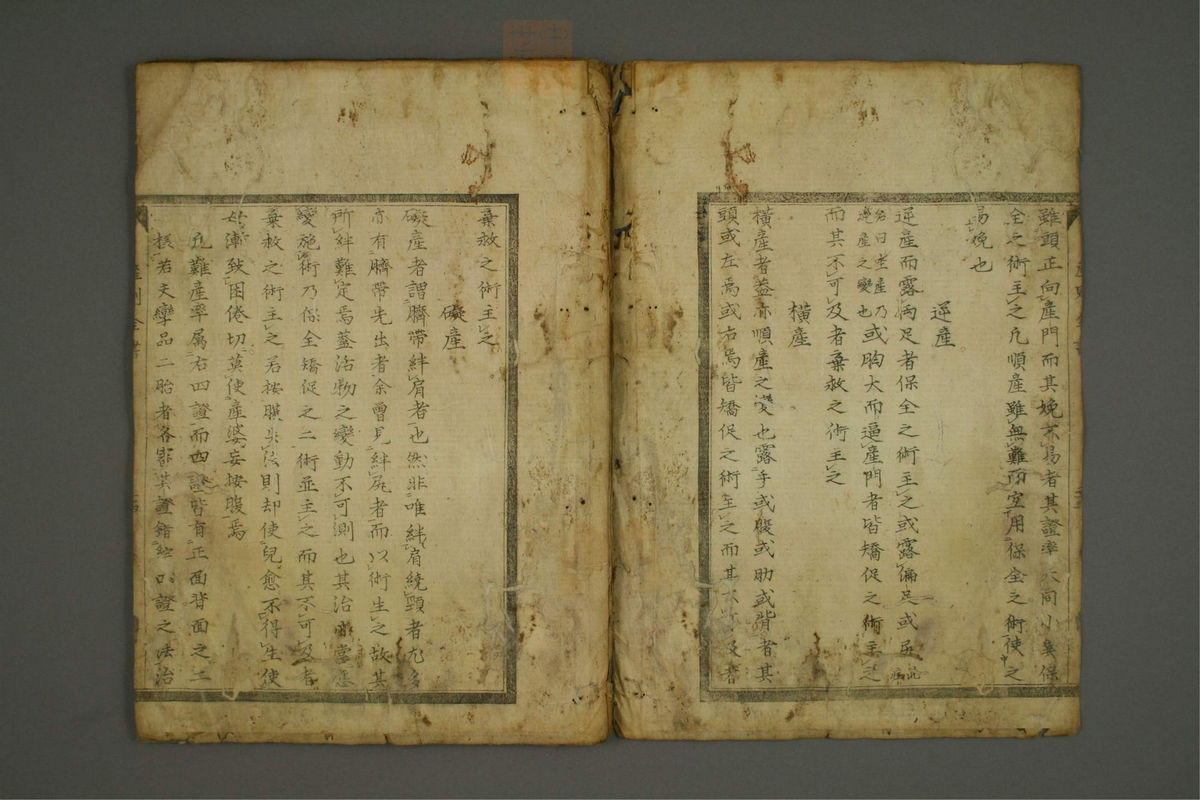 雖頭正向產門而其娩不易者其證率大同小異保
全之術主之凡順產雖無難而宜用保全之術使之
易娩也
逆產
逆產而露兩足者保全之術主之或露偏足或尻
名曰坐產乃
逆產之變也
或胸大而逼產門者皆矯促之術主之
而其不可及者棄救之術主之
橫產
橫產者蓋亦順產之變也露手或臂或肋或背者其
頭或左焉或右焉皆矯促之術主之而其不可及者
棄救之術主之
礙產
礙產者謂臍帶絆肩者也然非唯絆肩繞頸者尤多
亦有臍帶先出者余曾見絆尻者而以術生之故其
所絆難定焉蓋活物之變動不可測也其治亦當應
變施術乃保全矯促之二術並主之而其不可及者
棄救之術主之若按腹失法則却使兒愈不得生使
母漸致困倦切莫使產婆妄按腹焉
凡難產率屬右四證而四證皆有正面背面之二
若夫孿品二胎者各審其證錯綜四證之法治